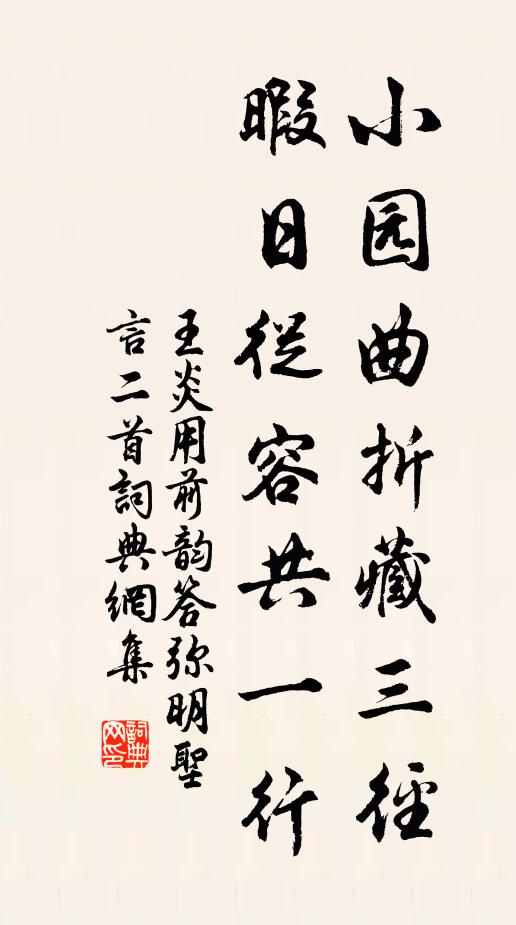 小园曲折藏三徑
暇日從容共一行
王炎用前韵答弥明聖
言二首詞典網集
詞典網印